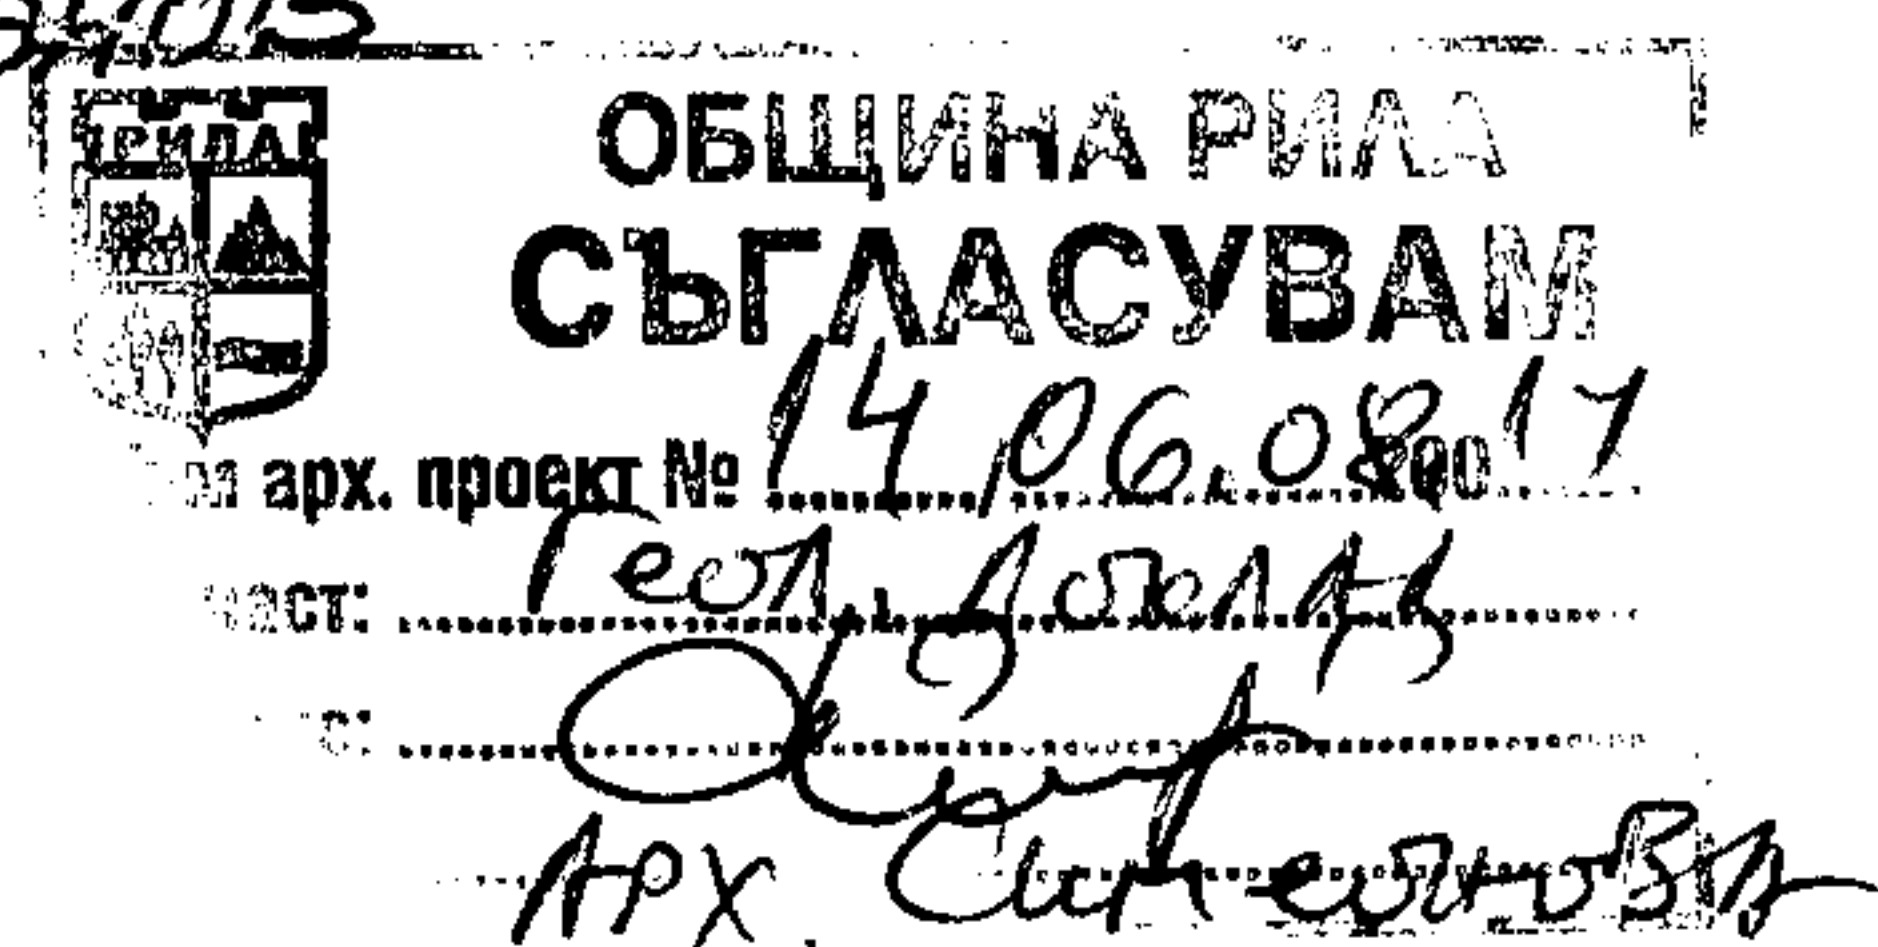 РИЛА
ОБЩИНА РИЛА
СЪГЛАСУВАМ
арх. проект № 14/06.08.200 17
част: Геол. доклад
АРХ. Симеонова